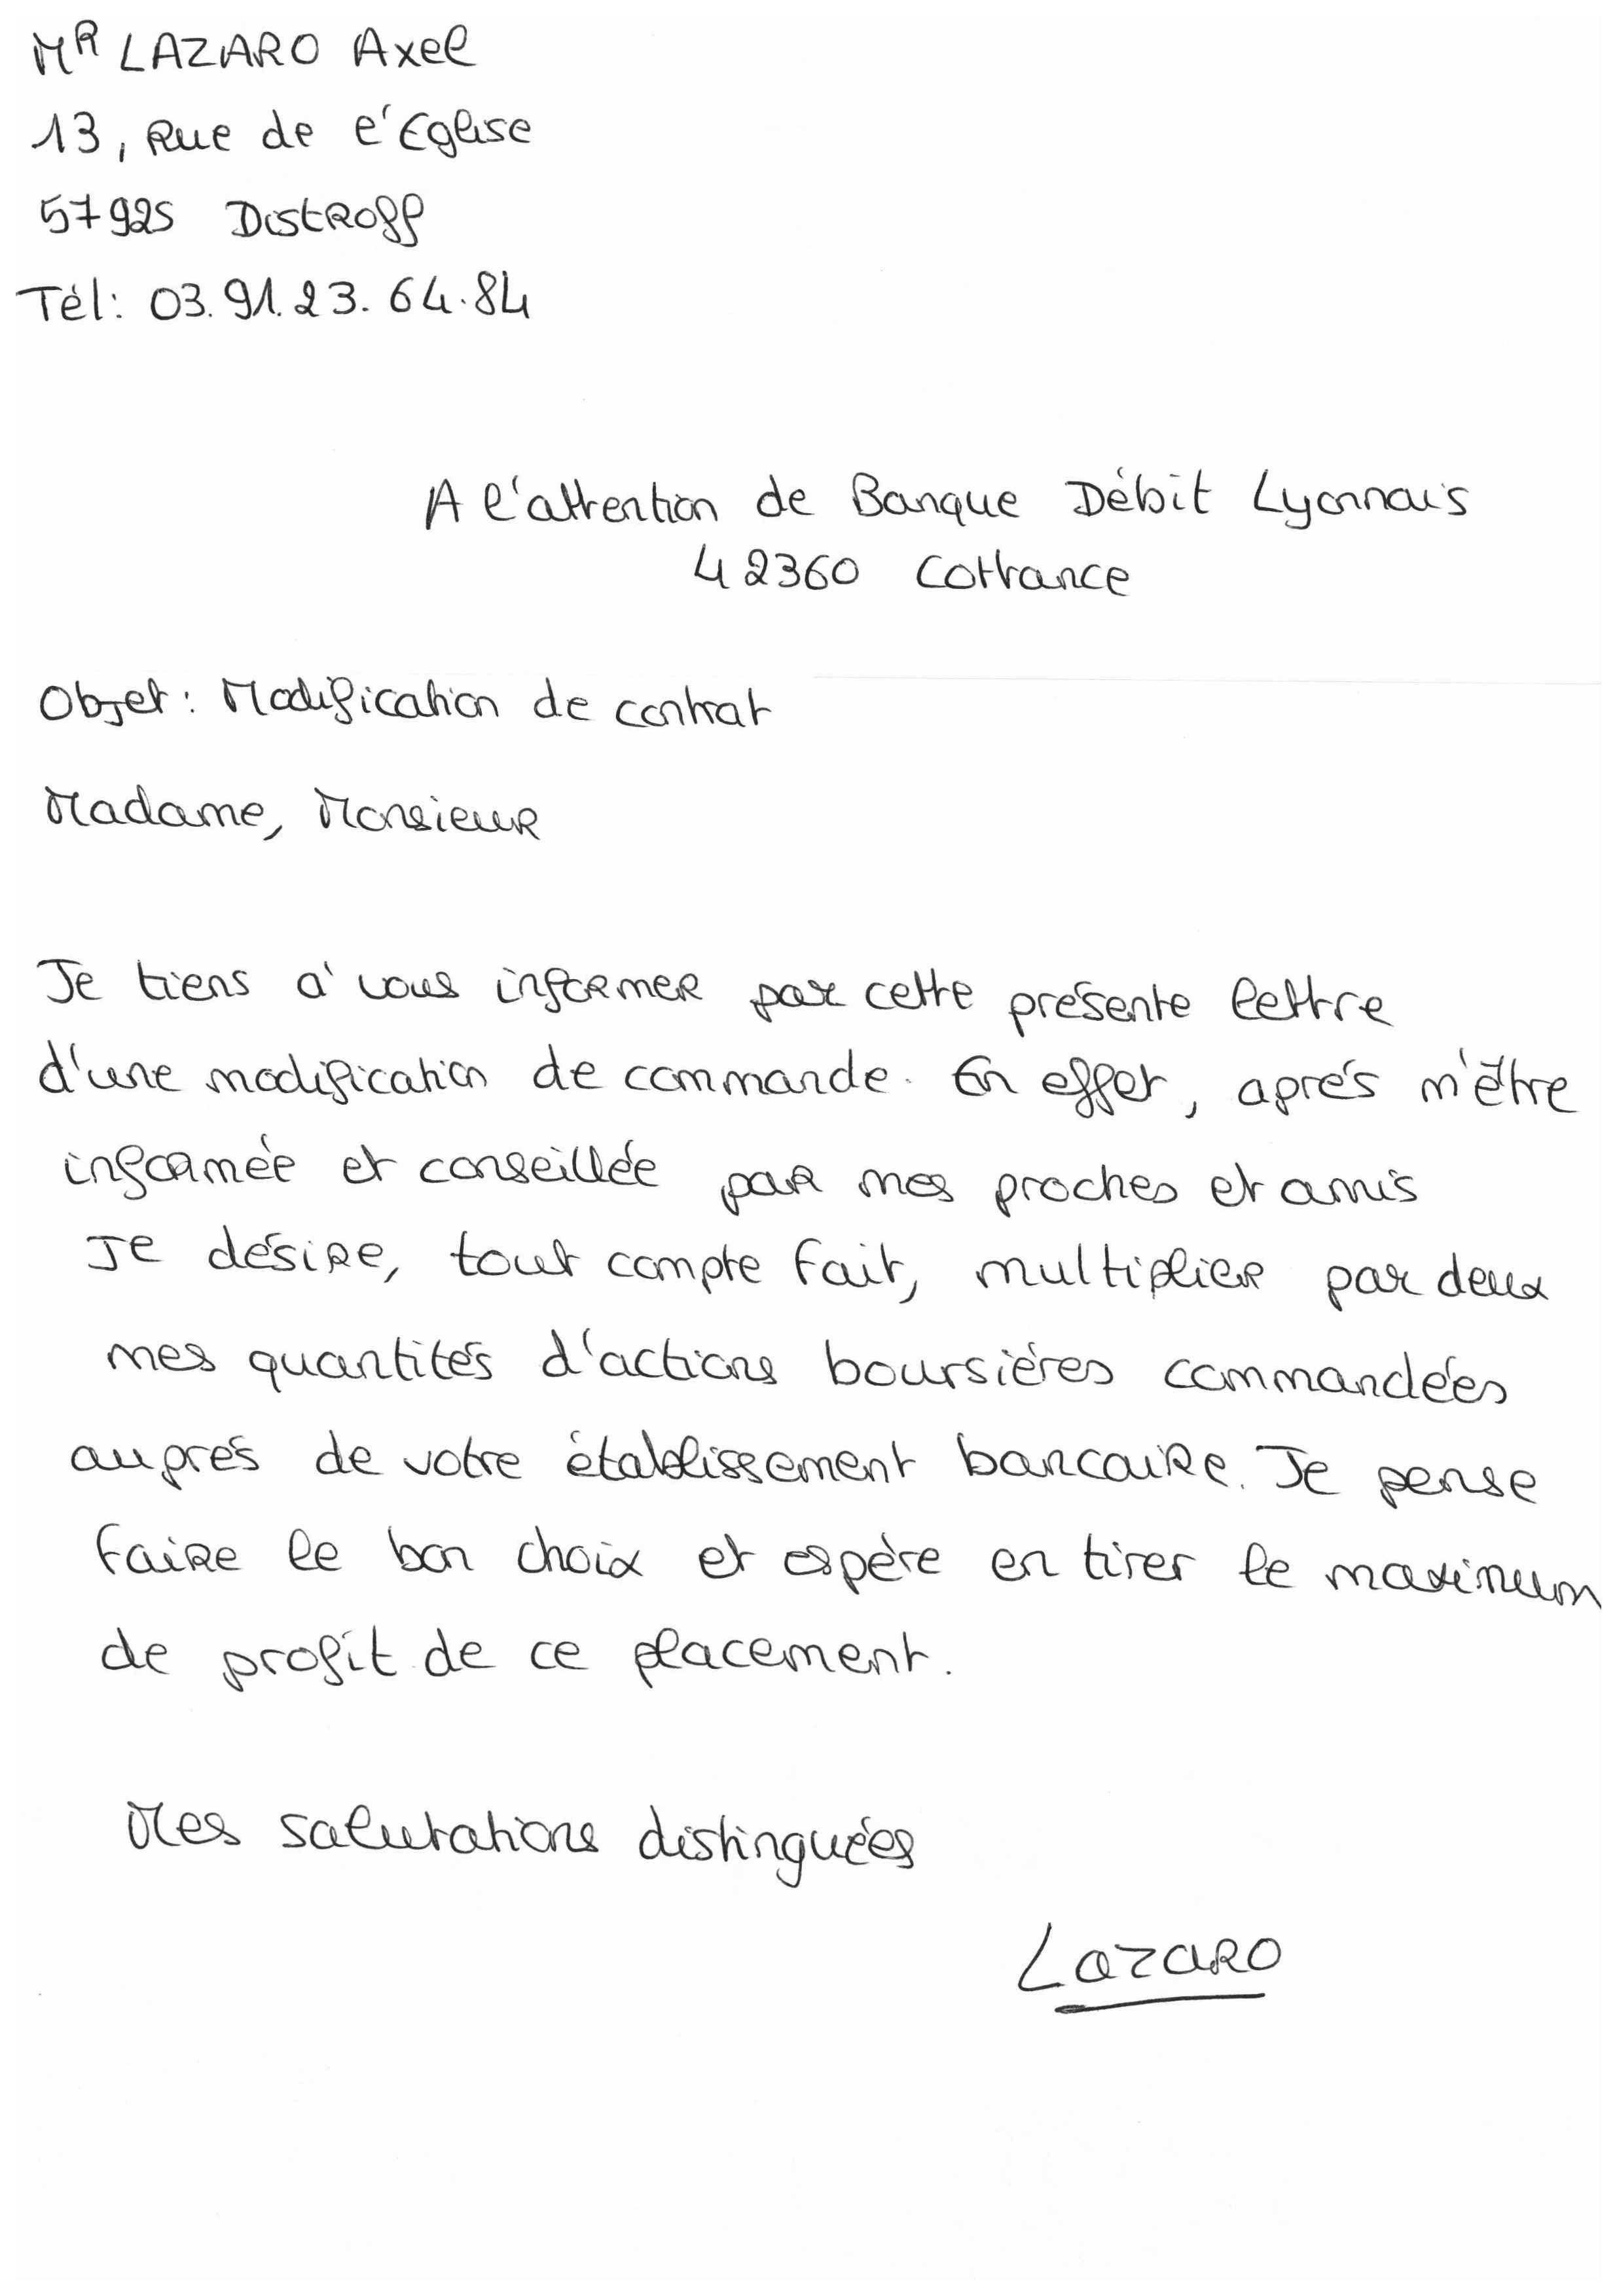 MR LAZARO Axel
13, Rue de l'Eglise
57925 Distroff
Tél: 03.91.23.64.84
A l'attention de Banque Débit Lyonnais
42360 Cottance
Objet: Modification de contrat
Madame, Monsieur
Je tiens à vous informer par cette présente lettre
d'une modification de commande. En effet, après m'être
informée et conseillée par mes proches et amis
Je désire, tout compte fait, multiplier par deux
mes quantités d'actions boursières commandées
auprés de votre établissement bancaire. Je pense
faire le bon choix et espère en tirer le maximum
de profit de ce placement.
Mes salutations distinguées
Lazaro